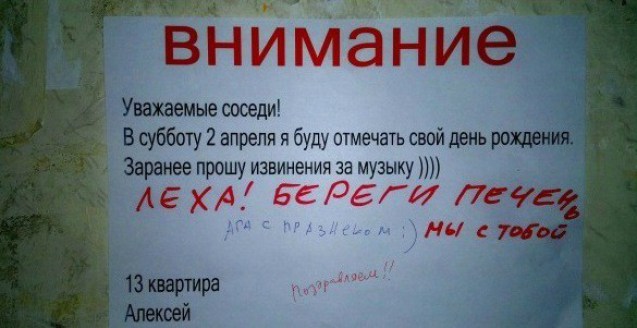 внимание
Уважаемые соседи!
В субботу 2 апреля я буду отмечать свой день рождения.
Заранее прошу извинения за музыку ))))
ЛЕХА! БЕРЕГИ ПЕЧЕНЬ
ДА С ПРАЗНЕКОМ :) МЫ С ТОБОЙ
Поздравляем!!
13 квартира
Алексей